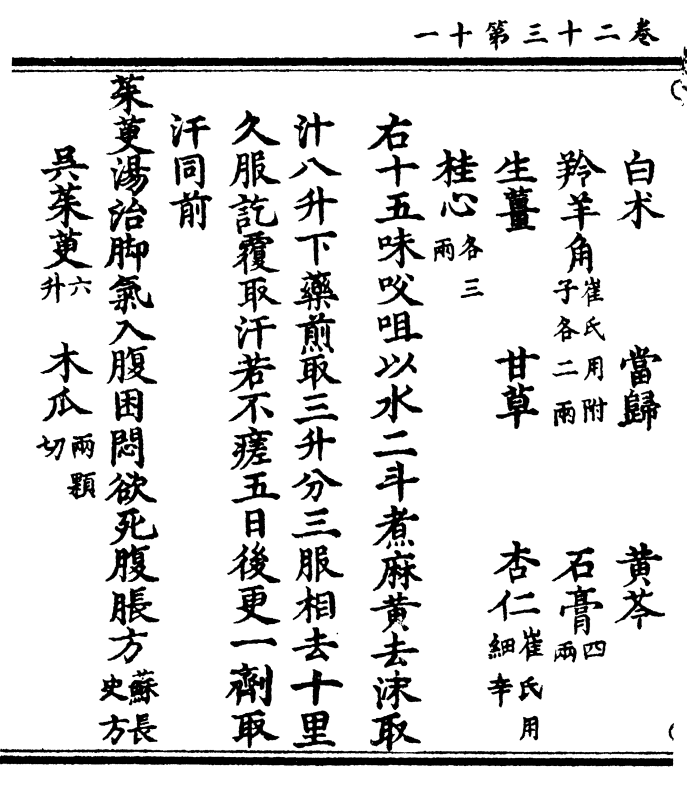 卷二十三第十一
白术 當歸 黄芩
羚羊角崔氏用附子各二兩 石膏四兩
生薑 甘草 杏仁崔氏用細辛
桂心各三兩
右十五味㕮咀以水二斗煮麻黄去沫取
汁八升下藥煎取三升分三服相去十里
久服訖覆取汗若不瘥五日後更一劑取
汗同前
茱萸湯治脚氣入腹困悶欲死腹脹方蘇長史方
吳茱萸六升 木瓜兩顆切